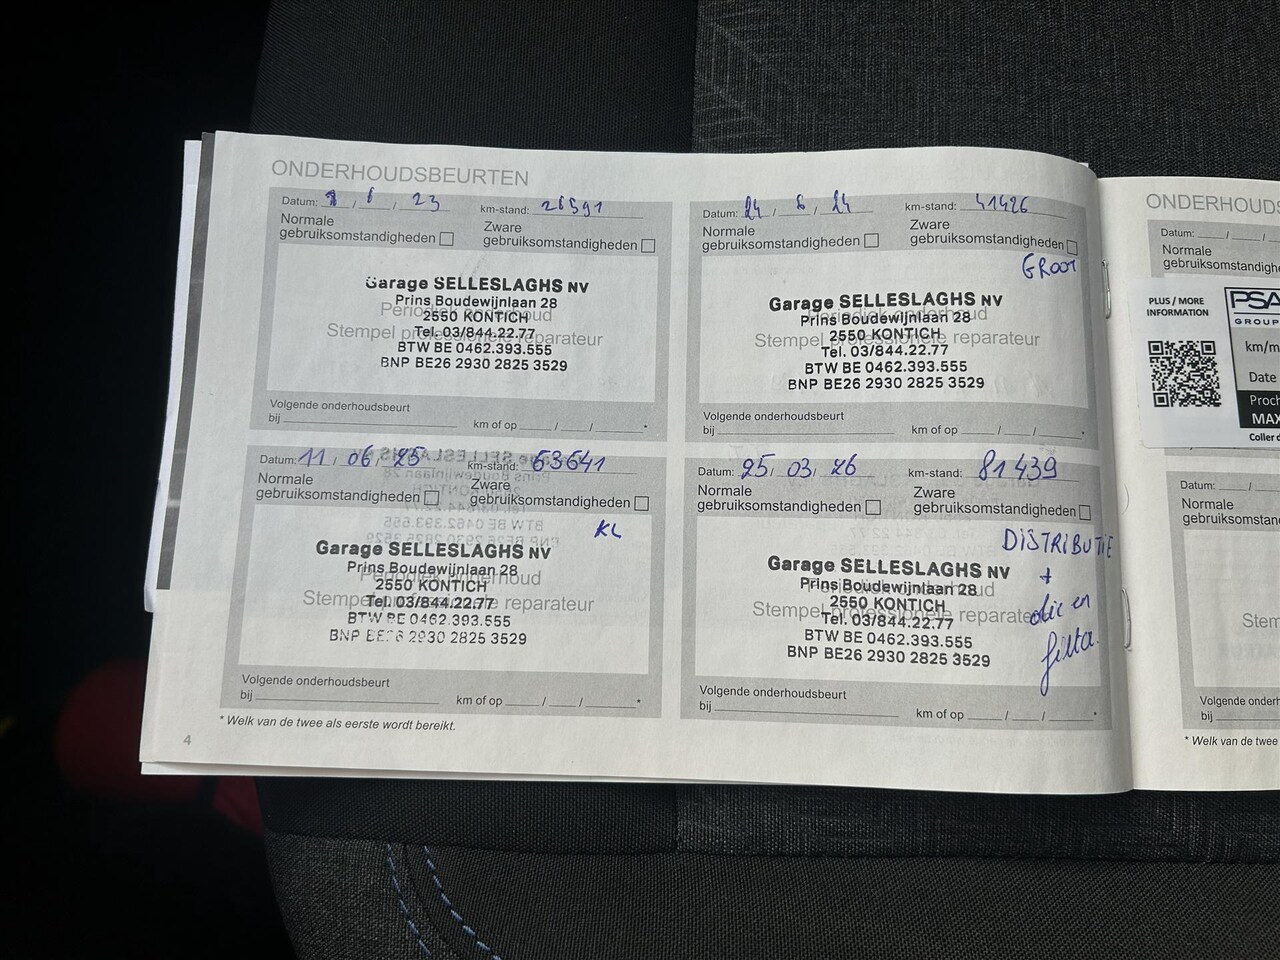 ONDERHOUDSBEURTEN
Datum: 1 / 6 / 23 km-stand: 26591
Normale gebruiksomstandigheden
Zware gebruiksomstandigheden
Garage SELLESLAGHS NV
Prins Boudewijnlaan 28
2550 KONTICH
Tel. 03/844.22.77
BTW BE 0462.393.555
BNP BE26 2930 2825 3529
Periodiek onderhoud
Stempel professionele reparateur
Volgende onderhoudsbeurt
bij km of op / / *
Datum: 24 / 6 / 24 km-stand: 41426
Normale gebruiksomstandigheden
Zware gebruiksomstandigheden
GROOT
Garage SELLESLAGHS NV
Prins Boudewijnlaan 28
2550 KONTICH
Tel. 03/844.22.77
BTW BE 0462.393.555
BNP BE26 2930 2825 3529
Periodiek onderhoud
Stempel professionele reparateur
Volgende onderhoudsbeurt
bij km of op / / *
Datum: 11 / 06 / 25 km-stand: 63641
Normale gebruiksomstandigheden
Zware gebruiksomstandigheden
KL
Garage SELLESLAGHS NV
Prins Boudewijnlaan 28
2550 KONTICH
Tel. 03/844.22.77
BTW BE 0462.393.555
BNP BE26 2930 2825 3529
Periodiek onderhoud
Stempel professionele reparateur
Volgende onderhoudsbeurt
bij km of op / / *
Datum: 25 / 03 / 26 km-stand: 81439
Normale gebruiksomstandigheden
Zware gebruiksomstandigheden
DISTRIBUTIE
+
olie en
filter
Garage SELLESLAGHS NV
Prins Boudewijnlaan 28
2550 KONTICH
Tel. 03/844.22.77
BTW BE 0462.393.555
BNP BE26 2930 2825 3529
Periodiek onderhoud
Stempel professionele reparateur
Volgende onderhoudsbeurt
bij km of op / / *
* Welk van de twee als eerste wordt bereikt.
4
ONDERHOUDS
Datum: / /
Normale
gebruiksomstandighe
PLUS / MORE
INFORMATION
PSA
GROUP
km/m
Date
Proch
MAX
Coller d
Datum: / /
Normale
gebruiksomstandig
Stem
Volgende onderhoud
bij
* Welk van de twee